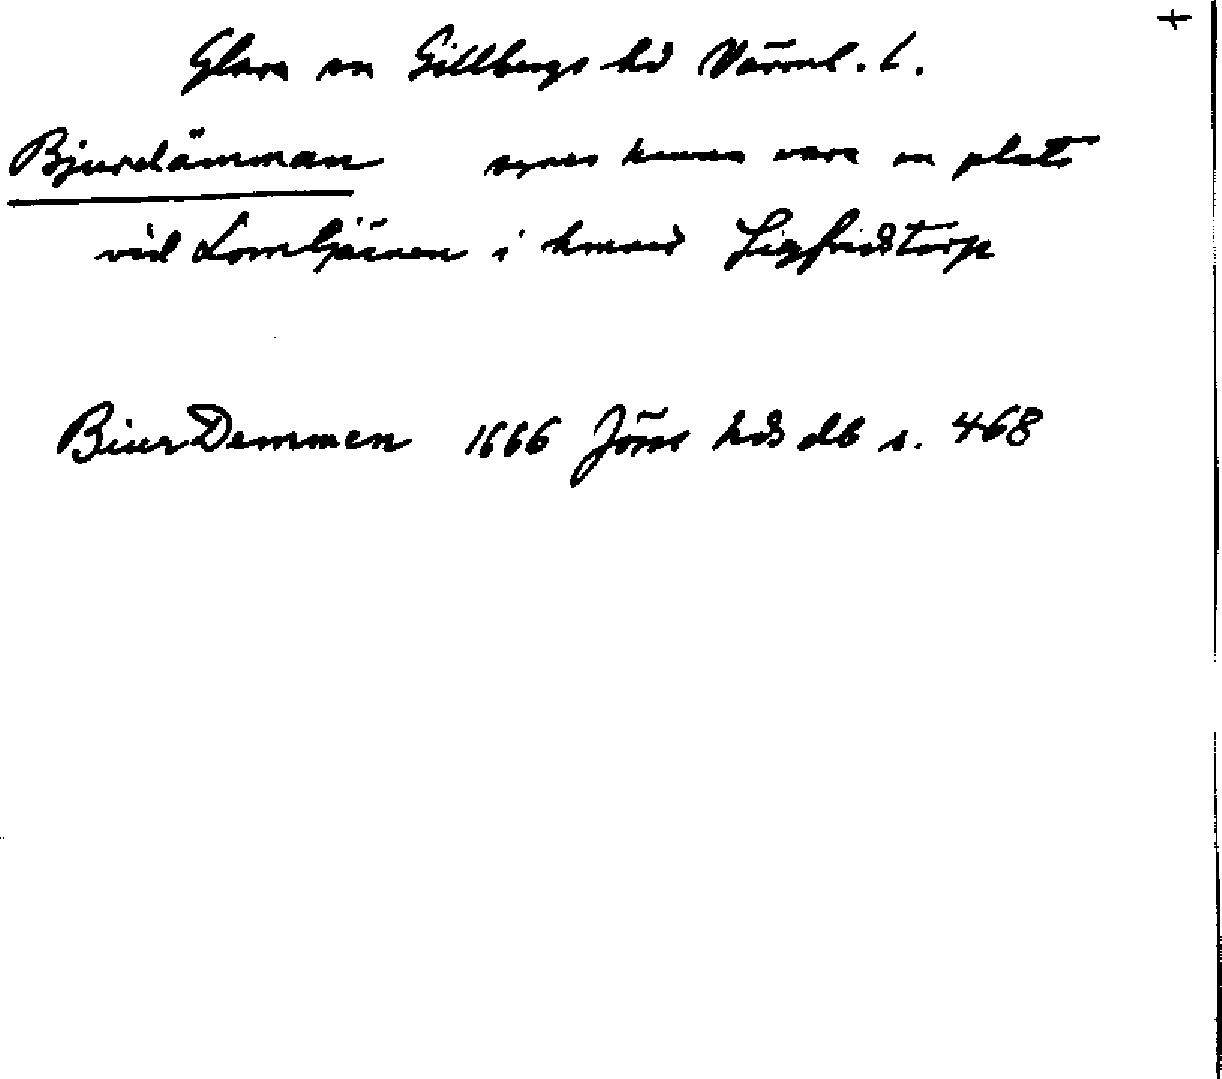 +
Glava sn Gillbergs hd Värml. l.
Bjurdämman synes kunna vara en plats
vid Lomtjärnen i hmnd Sigfridstorp
BiurDemmen 1666 Jösse hds db s. 468